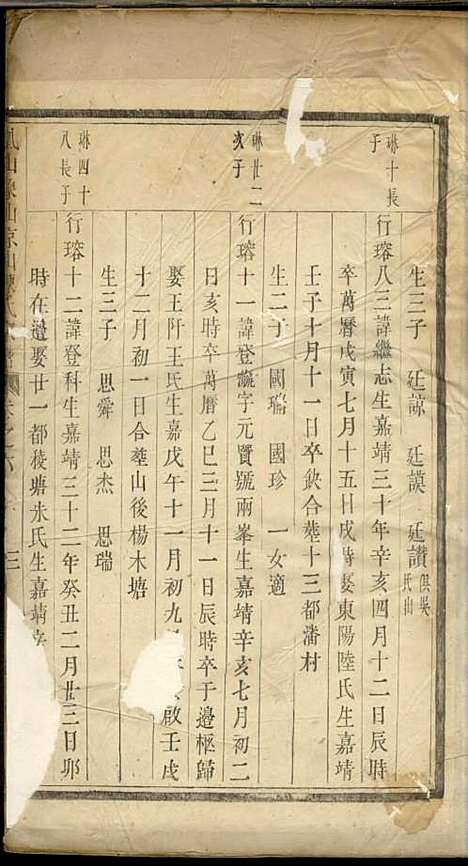 生三子　廷諒　廷謨　廷讚俱吳氏出
琳十長子
行瑢八三諱繼志生嘉靖三十年辛亥四月十二日辰時
卒萬曆戊寅七月十五日戌時娶東陽陸氏生嘉靖
壬子十月十一日卒缺合塟十三都潘村
生二子　國瑞　國珍　一女適
琳廿二次子
行瑢十一諱登瀛字元賢號雨峯生嘉靖辛亥七月初二
日亥時卒萬曆乙巳三月十一日辰時卒于邉柩歸
娶王阡王氏生嘉戊午十一月初九 啟壬戌
十二月初一日合塟山後楊木塘
生三子　思舜　思杰　思瑞
琳四十八長子
行瑢十二諱登科生嘉靖三十二年癸丑二月廿三日卯
時在邉娶廿一都稜塘朱氏生嘉靖
三